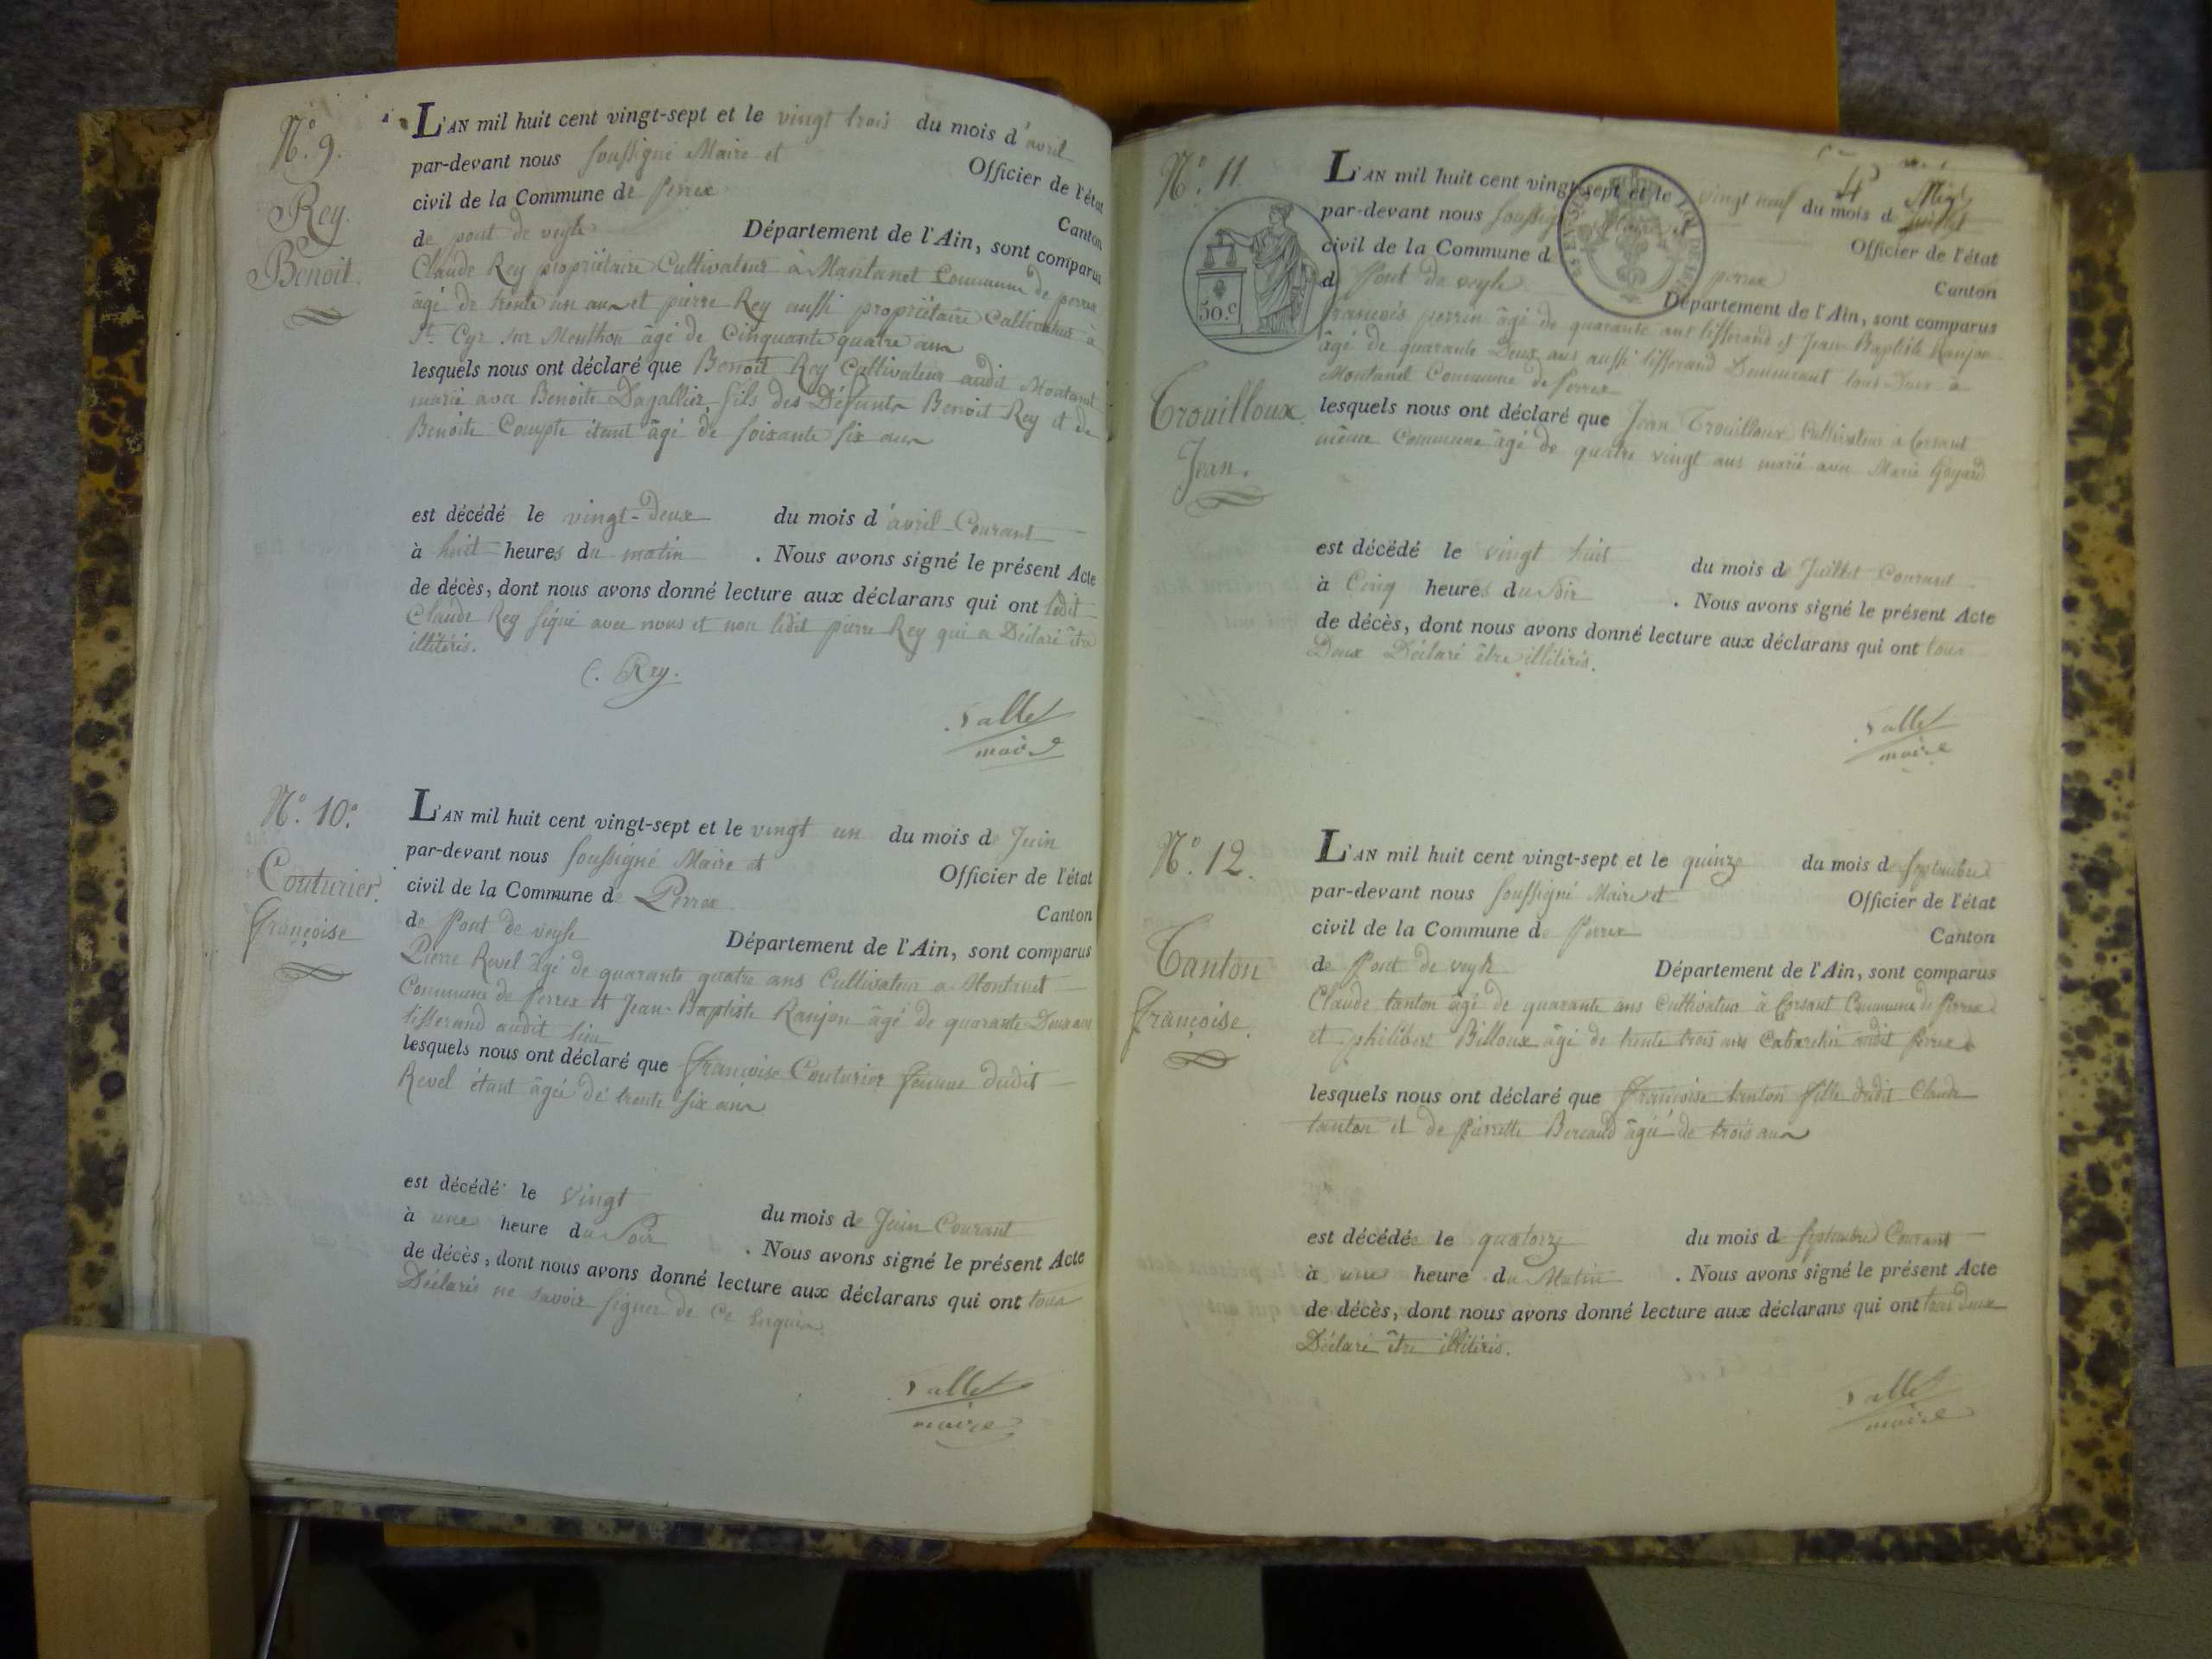 N.° 9.
Rey.
Benoit.
L'AN mil huit cent vingt-sept et le vingt trois du mois d'avril
par-devant nous soussigné Maire et Officier de l'état
civil de la Commune de perrex Canton
de pont de veyle Département de l'Ain, sont comparus
Claude Rey propriétaire Cultivateur à Montanet Commune de perrex
âgé de trente un ans et pierre Rey aussi propriétaire Cultivateur à
St. Cyr sur Menthon âgé de Cinquante quatre ans
lesquels nous ont déclaré que Benoit Rey Cultivateur audit Montanet
marié avec Benoite Dagallier, fils des Défunts Benoit Rey et de
Benoite Compte étant âgé de soixante six ans
est décédé le vingt-deux du mois d'avril Courant
à huit heures du matin . Nous avons signé le présent Acte
de décès, dont nous avons donné lecture aux déclarans qui ont ledit
Claude Rey signé avec nous et non ledit pierre Rey qui a Déclaré être
illitérés.
C. Rey.
Sallet
maire
N.° 10.°
Couturier.
françoise
L'AN mil huit cent vingt-sept et le vingt un du mois de Juin
par-devant nous soussigné Maire et Officier de l'état
civil de la Commune de Perrex Canton
de Pont de veyle Département de l'Ain, sont comparus
Pierre Revel âgé de quarante quatre ans Cultivateur a
Commune de perrex et Jean-Baptiste Ranjon âgé de quarante Deux ans
tisserand audit lieu
lesquels nous ont déclaré que françoise Couturier femme dudit
Revel étant âgée de trente six ans
est décédé le Vingt du mois de Juin Courant
à une heure du Soir . Nous avons signé le présent Acte
de décès, dont nous avons donné lecture aux déclarans qui ont tous
Déclarés ne savoir signer de Ce Requis.
Sallet
maire
N.° 11.
50.c
Trouilloux.
Jean.
4
L'AN mil huit cent vingt-sept et le vingt neuf du mois d juillet
par-devant nous soussigné Maire et Officier de l'état
civil de la Commune d perrex Canton
d Pont de veyle Département de l'Ain, sont comparus
francois perrin âgé de quarante ans tisserand et Jean Baptiste Ranjon
âgé de quarante Deux ans aussi tisserand Demeurant tous Deux à
Montanet Commune de perrex
lesquels nous ont déclaré que Jean Trouilloux Cultivateur à Corsant
même Commune âgé de quatre vingt ans marié avec Marie Goyard
est décédé le vingt huit du mois de Juillet Courant
à Cinq heures du Soir . Nous avons signé le présent Acte
de décès, dont nous avons donné lecture aux déclarans qui ont tous
Deux Déclaré être illitérés.
Sallet
maire
N.° 12.
Tanton
françoise.
L'AN mil huit cent vingt-sept et le quinze du mois de septembre
par-devant nous soussigné Maire et Officier de l'état
civil de la Commune de Perrex Canton
de Pont de veyle Département de l'Ain, sont comparus
Claude tanton âgé de quarante ans cultivateur à Corsant Commune de Perrex
et philibert Billoux âgé de trente trois ans Cabaretier audit Perrex
lesquels nous ont déclaré que françoise tanton fille dudit Claude
tanton et de Pierrette Bercaud âgée de trois ans
est décédée le quatorze du mois de septembre Courant
à une heure du Matin . Nous avons signé le présent Acte
de décès, dont nous avons donné lecture aux déclarans qui ont tous deux
Déclaré être illitérés.
Sallet
maire